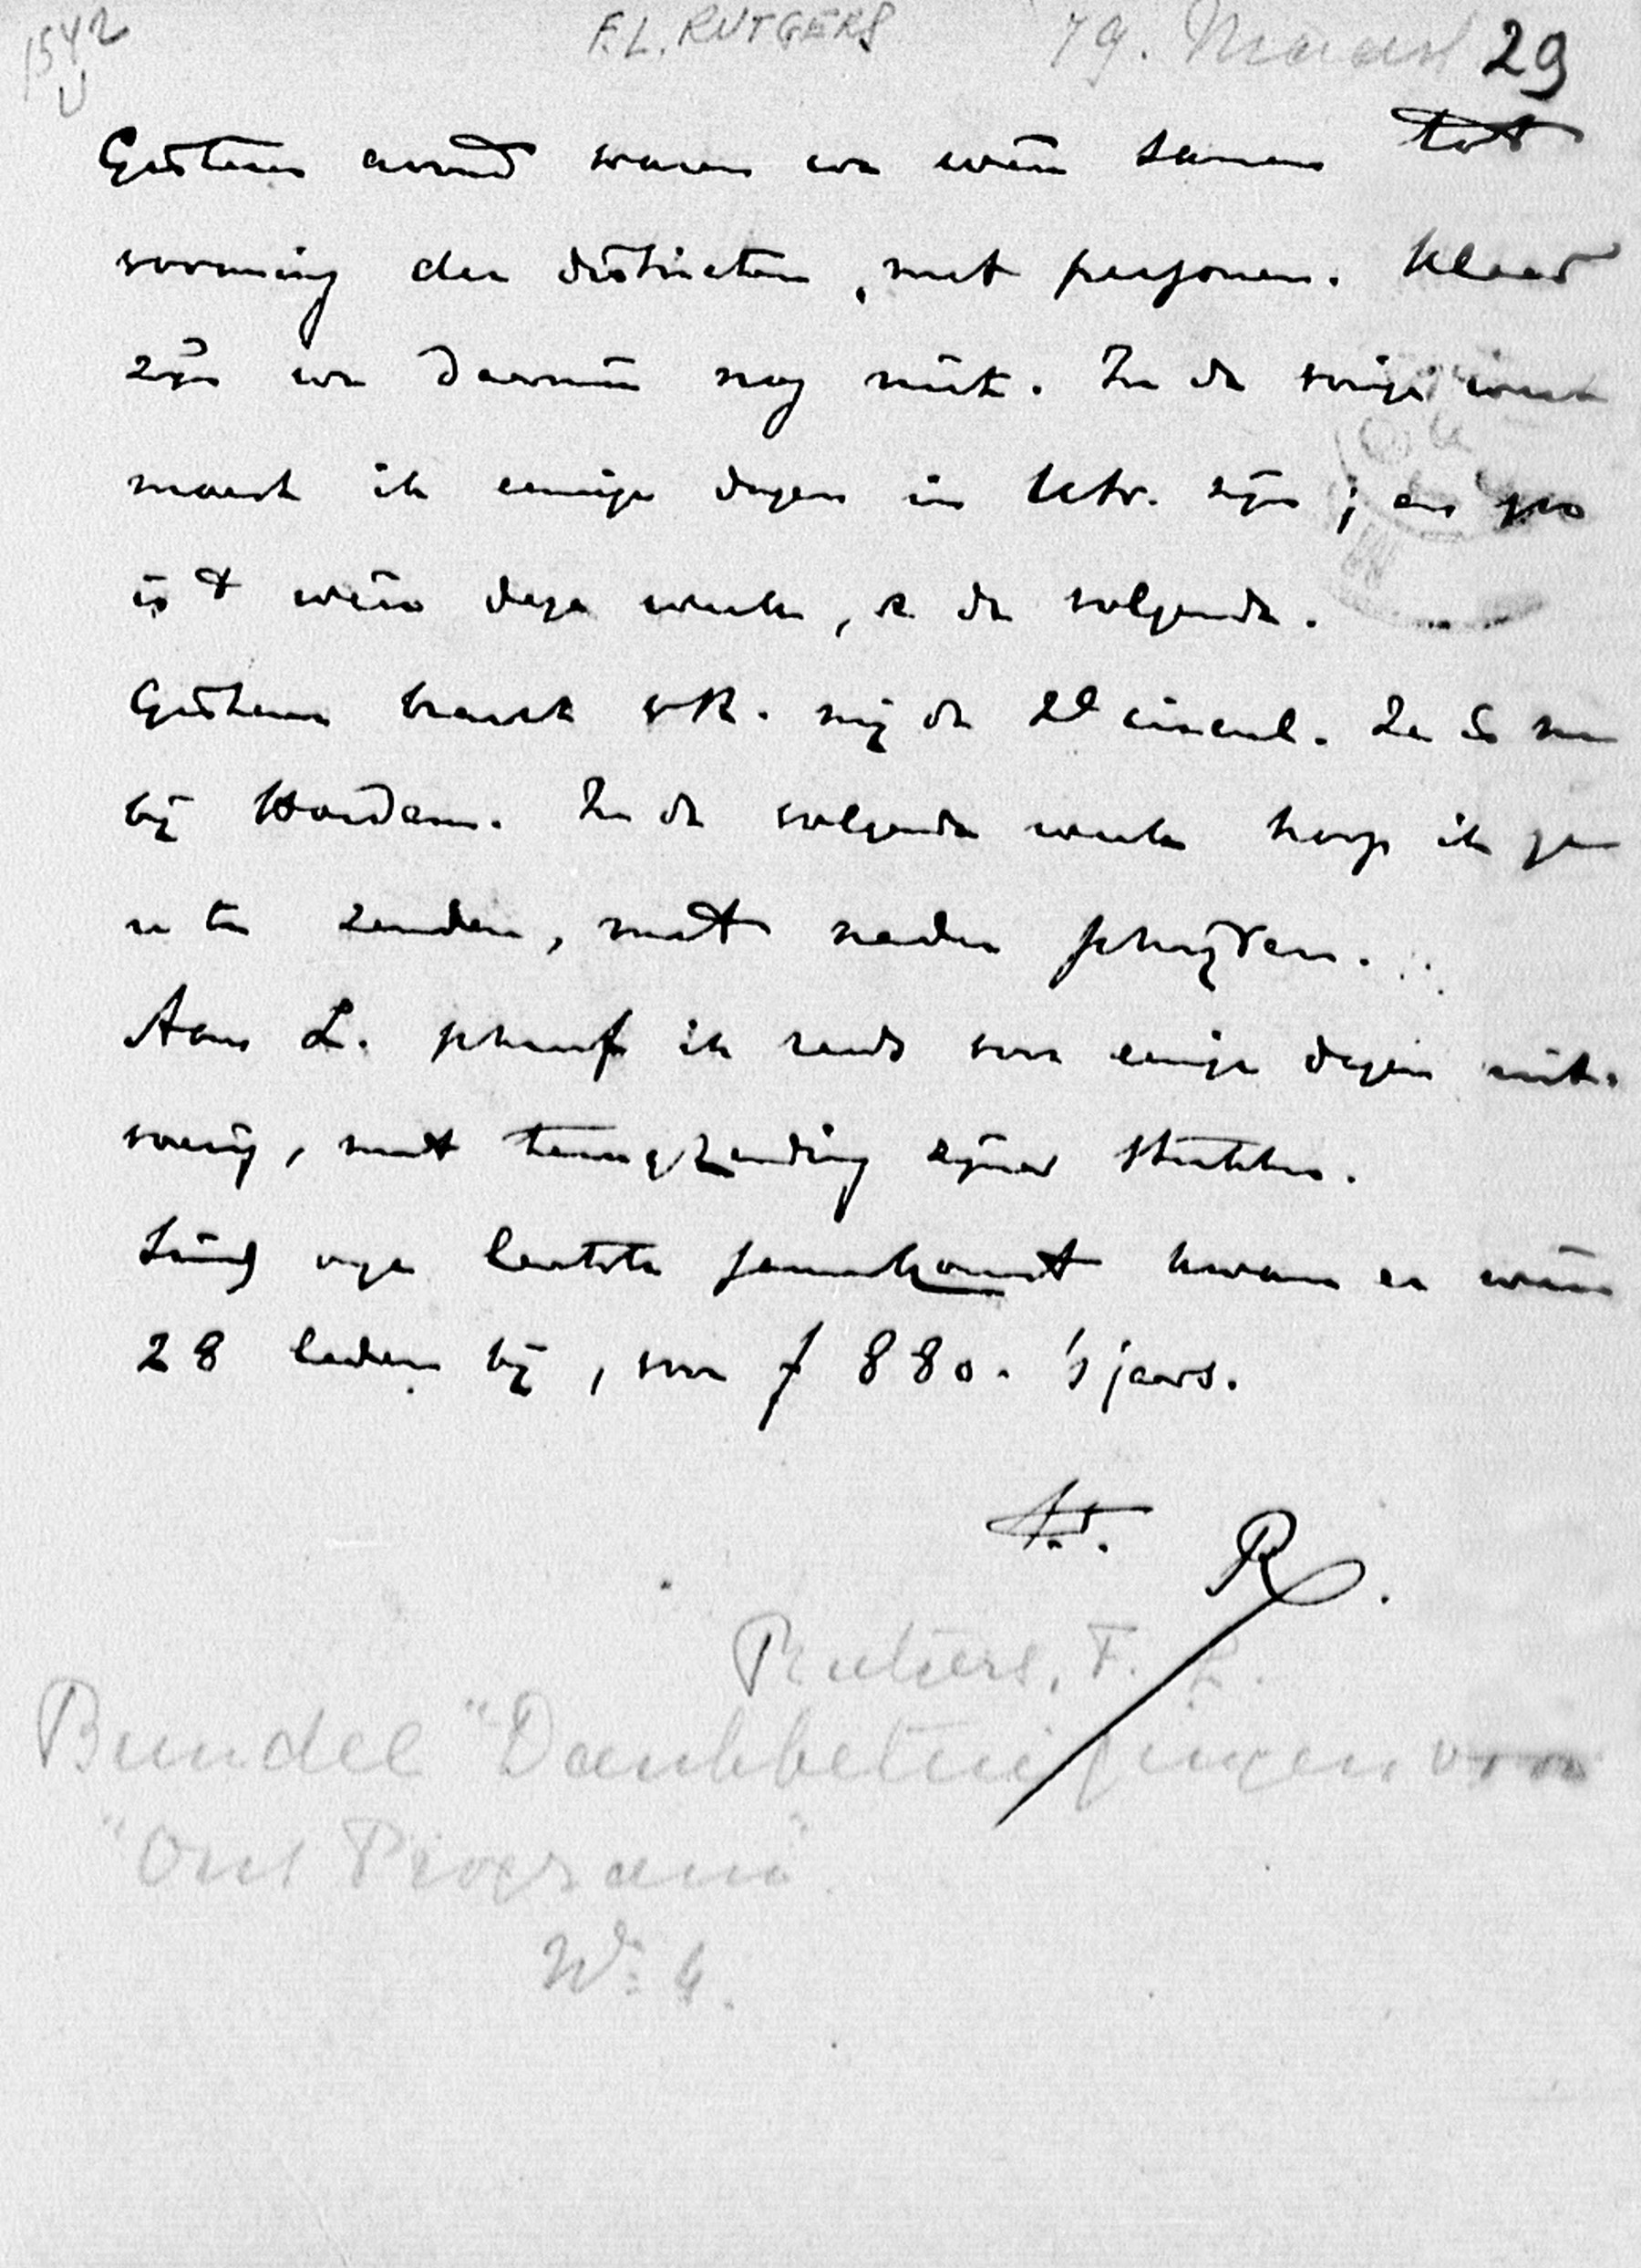 1542
F.L. RUTGERS
79. Maart 29
Gisteren avond waren we weer samen tot
vorming der districten, met personen. Klaar
zijn we daarmee nog niet. In de vorige week
moest ik eenige dagen in Utr. zijn; en zoo
is 't weer deze week, & de volgende.
Gisteren bracht vR. mij de 2e circul. Ze is nu
bij Hovÿ
In de volgende week hoop ik ze
u te zenden, met nader schrijven.
Aan L. schreef ik reeds voor eenige dagen uit-
voerig, met terugzending zijner stukken.
Sinds onze laatste samenkomst kwamen er weer
28 leden bij, voor ƒ 880. 's jaars.
tt. R.
Rutgers, F. L.
Bundel "Dankbetuigingen voor
"Ons Program"
No. 4.